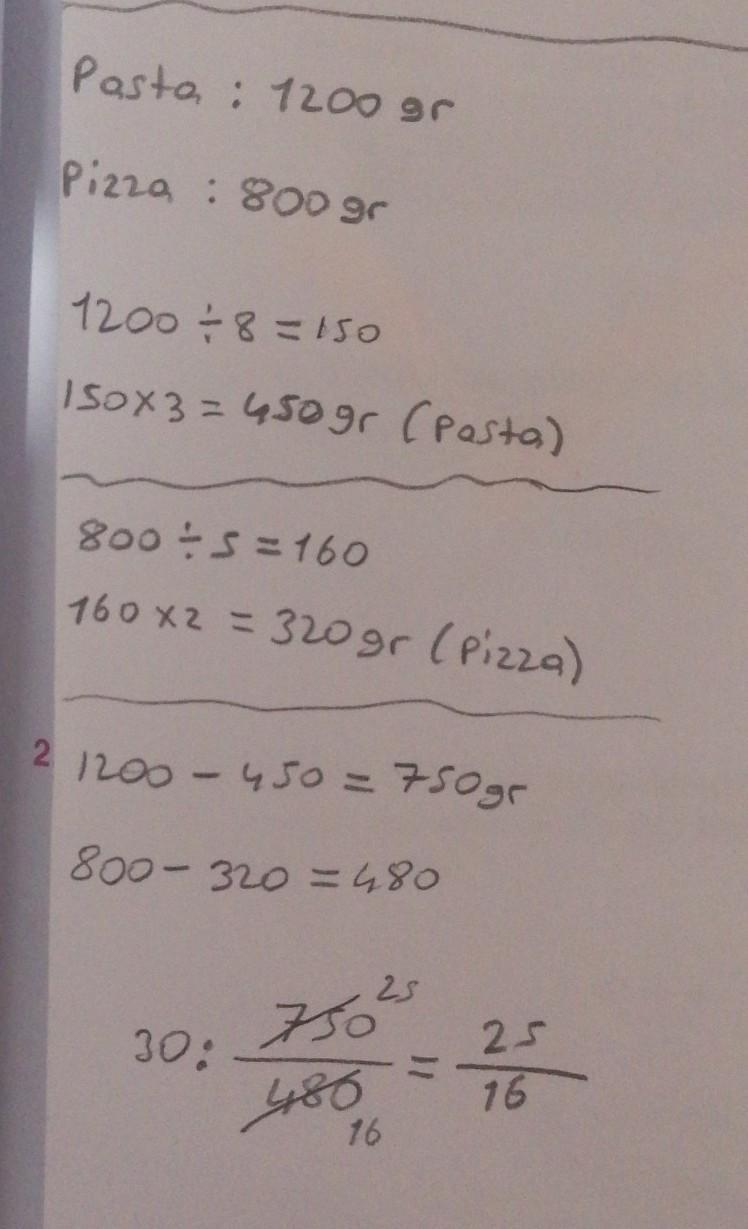 Pasta : 1200 gr
Pizza : 800gr
1200 ÷ 8 = 150
150 x 3 = 450gr (Pasta)
800 ÷ 5 = 160
160 x 2 = 320gr (Pizza)
2
1200 - 450 = 750gr
800 - 320 = 480
30: 750/480 25 16 = 25/16